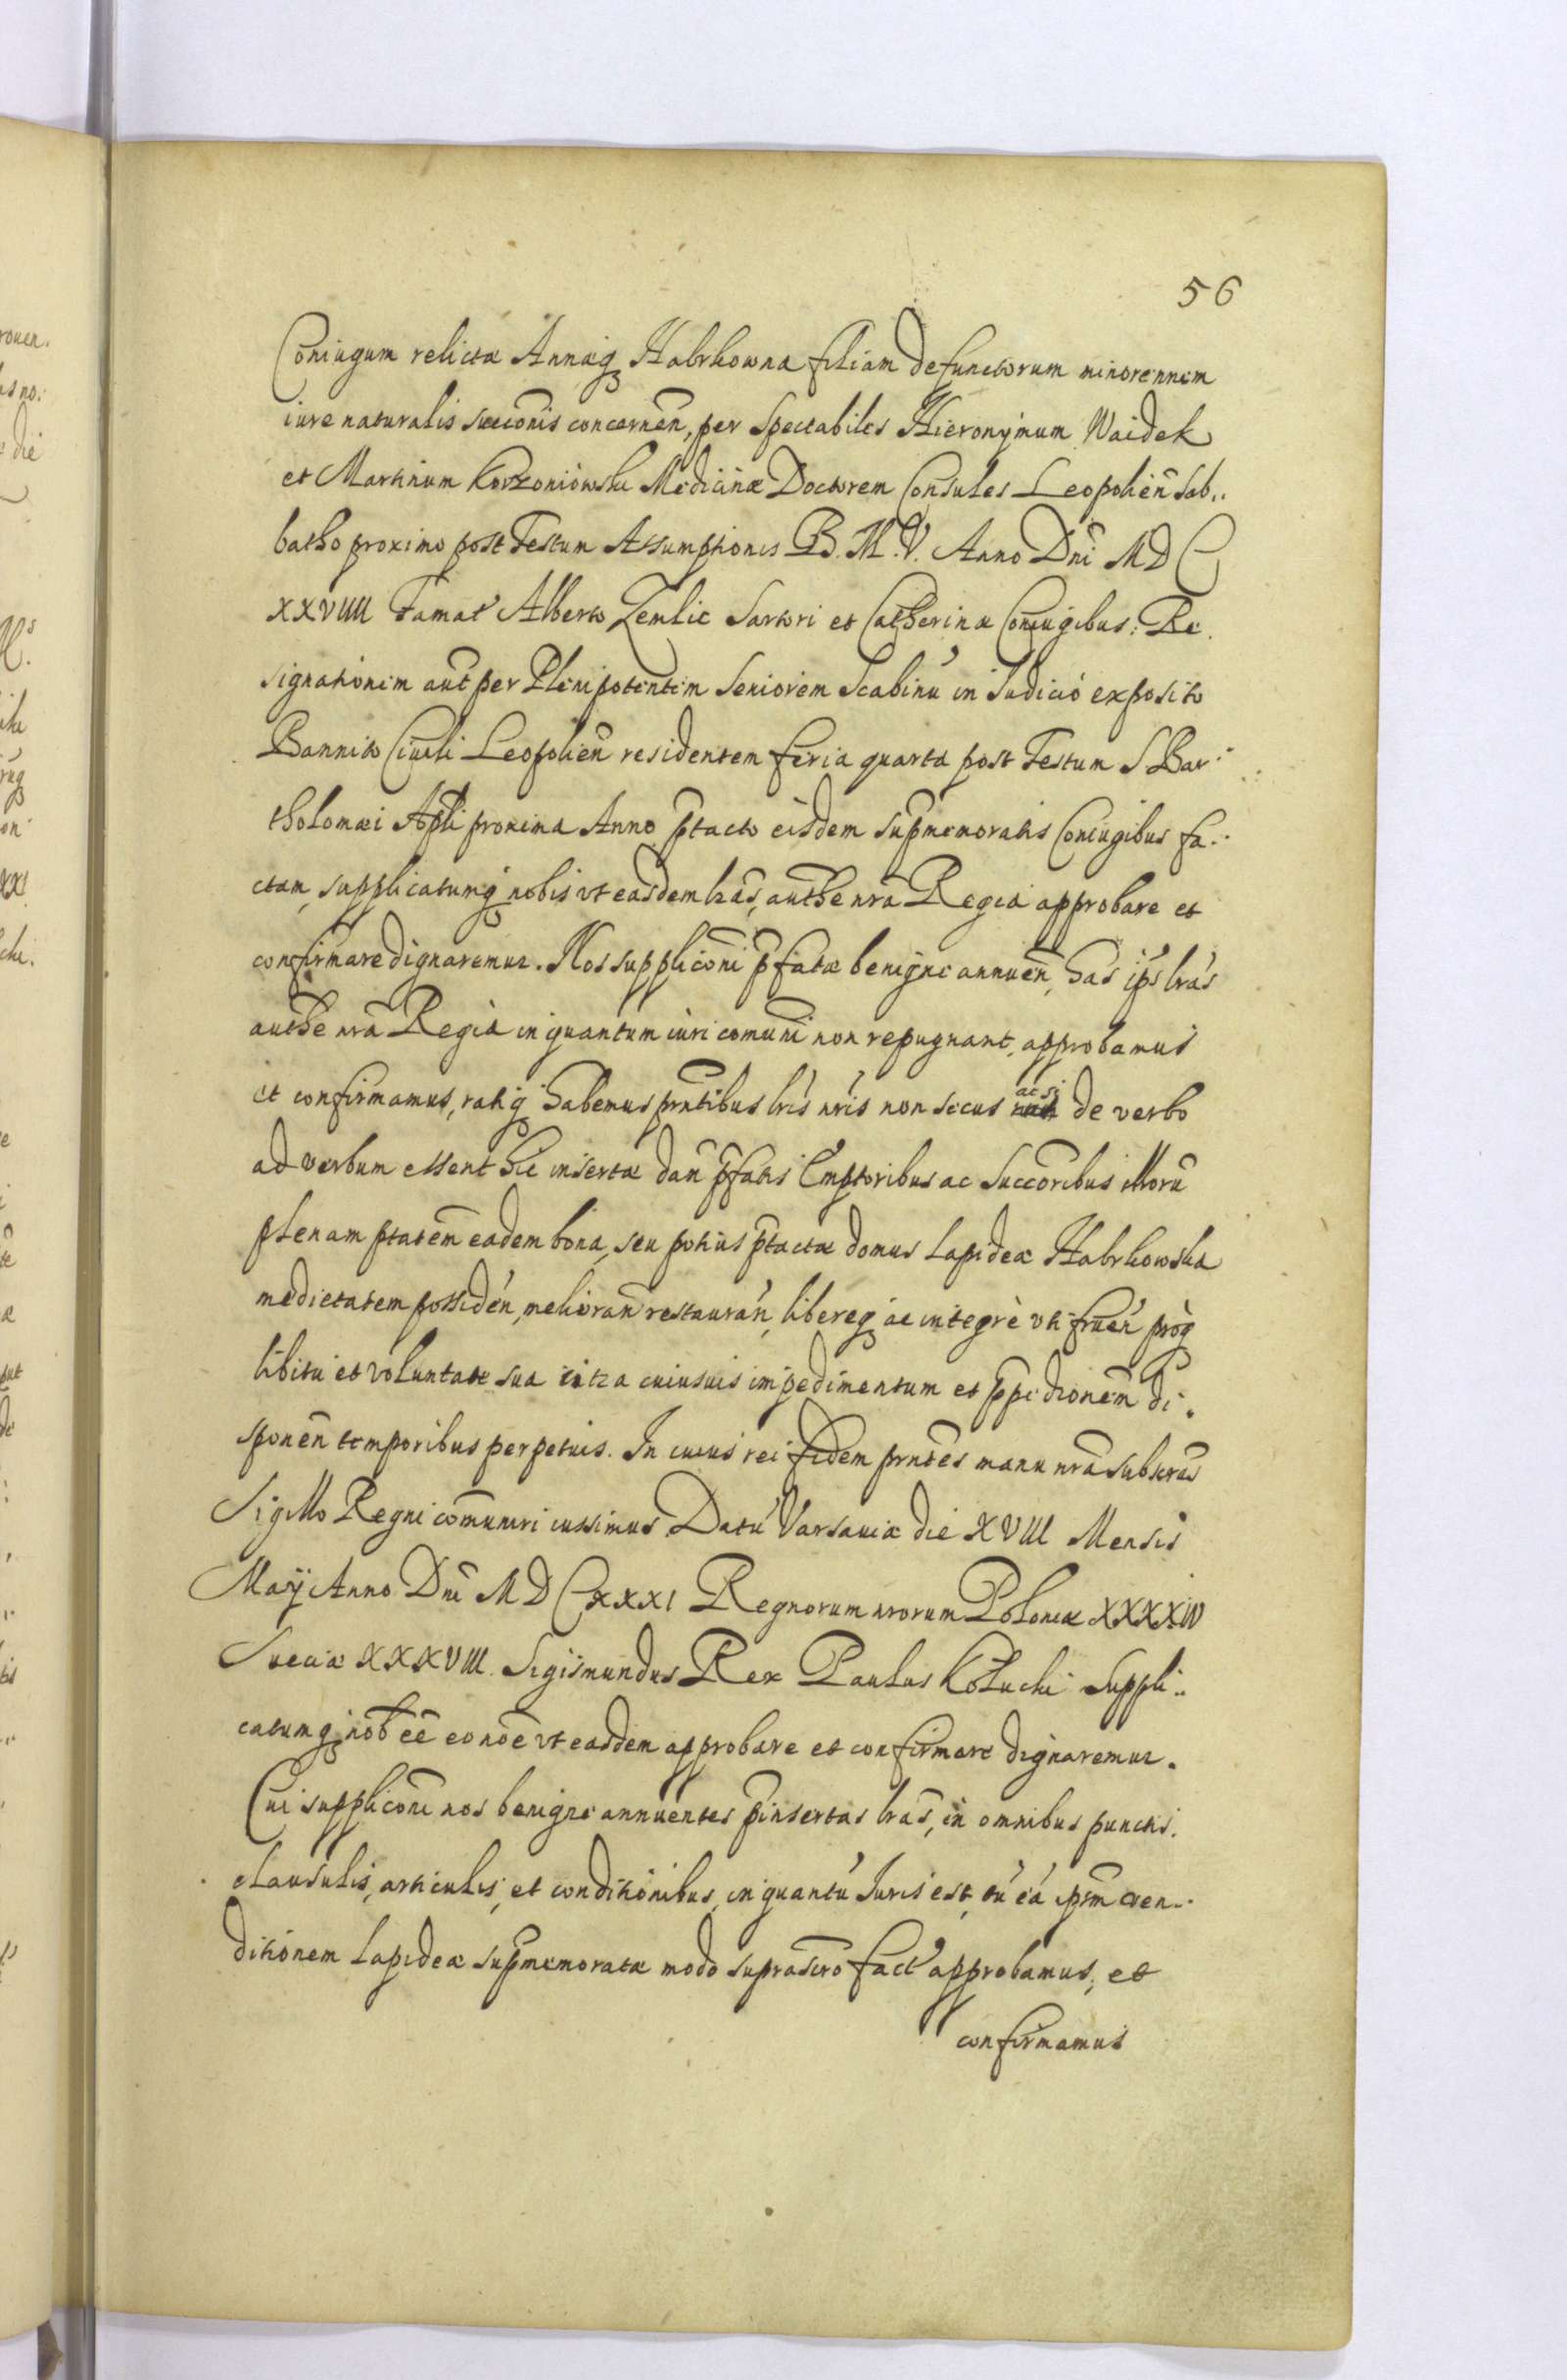 56
Coniugum relictæ Annæq Habrkowna filiam defunctorum minorennem
iure naturalis succōnis concernen̄, per Spectabiles Hieronymum Waidek
et Martinum Korzoniowski Medicinæ Doctorem Consules Leopolien̄ Sab..
batho proximo post Festum Assumptionis B. M. V. Anno Dnī MDC
XXVIIII Famat' Alberto Zemlic Sartori et Catherinæ Coniugibus: Re.
signationem aut̄ per Plenipotentem Seniorem Scabinu' in Iudicio exposito
Bannito Ciuili Leopolien̄ residentem feria quarta post Festum S Bar-
tholomæi Apl̄i proxima Anno p̄tacto eisdem sup̄memoratis Coniugibus fa..
ctam, supplicatumq nobis vt easdem lrās, authē nrā Regia approbare et
confirmare dignaremur. Nos supplicōni p̄fatæ benigne annuen̄, has ip̄s lrās
authē nrā Regia in quantum iuri comuni non repugnant, approbamus
et confirmamus, ratiq habemus prn̄tibus lrīs nrīs non secus ac si de verbo
ad verbum essent hic insertæ dan̄ p̄fatis Emptoribus ac Succōribus illoru'
plenam p̄tatem eadem bona, seu potius p̄tactæ domus Lapideæ Habrkowska
medietatem possiden̄, melioran̄ restauran̄, libereq ac integrè uti fruen̄ pròq
libitu et voluntate sua citra cuiusuis impedimentum et p̄pedionem di.
sponen̄ temporibus perpetuis. In cuius rei fidem prn̄tes manu nrā subscrās
Sigillo Regni com̄uniri iussimus Datu' Varsauiæ die XVIII Mensis
Maij Anno Dnī MDCXXXI Regnorum nrorum Poloniæ XXXXIV
Sueciæ XXXVIII. Sigismundus Rex Paulus Kołucki Suppli..
catumq nob̄ ēē eo noē vt easdem approbare et confirmare dignaremur.
Cui supplicōni nos benigne annuentes p̄insertas lrās, in omnibus punctis.
clausulis, articulis, et conditionibus, in quantu' Iuris est, tu' ea' ip̄m ven..
ditionem Lapideæ sup̄memoratæ modo suprascrō fact' approbamus, et
confirmamus